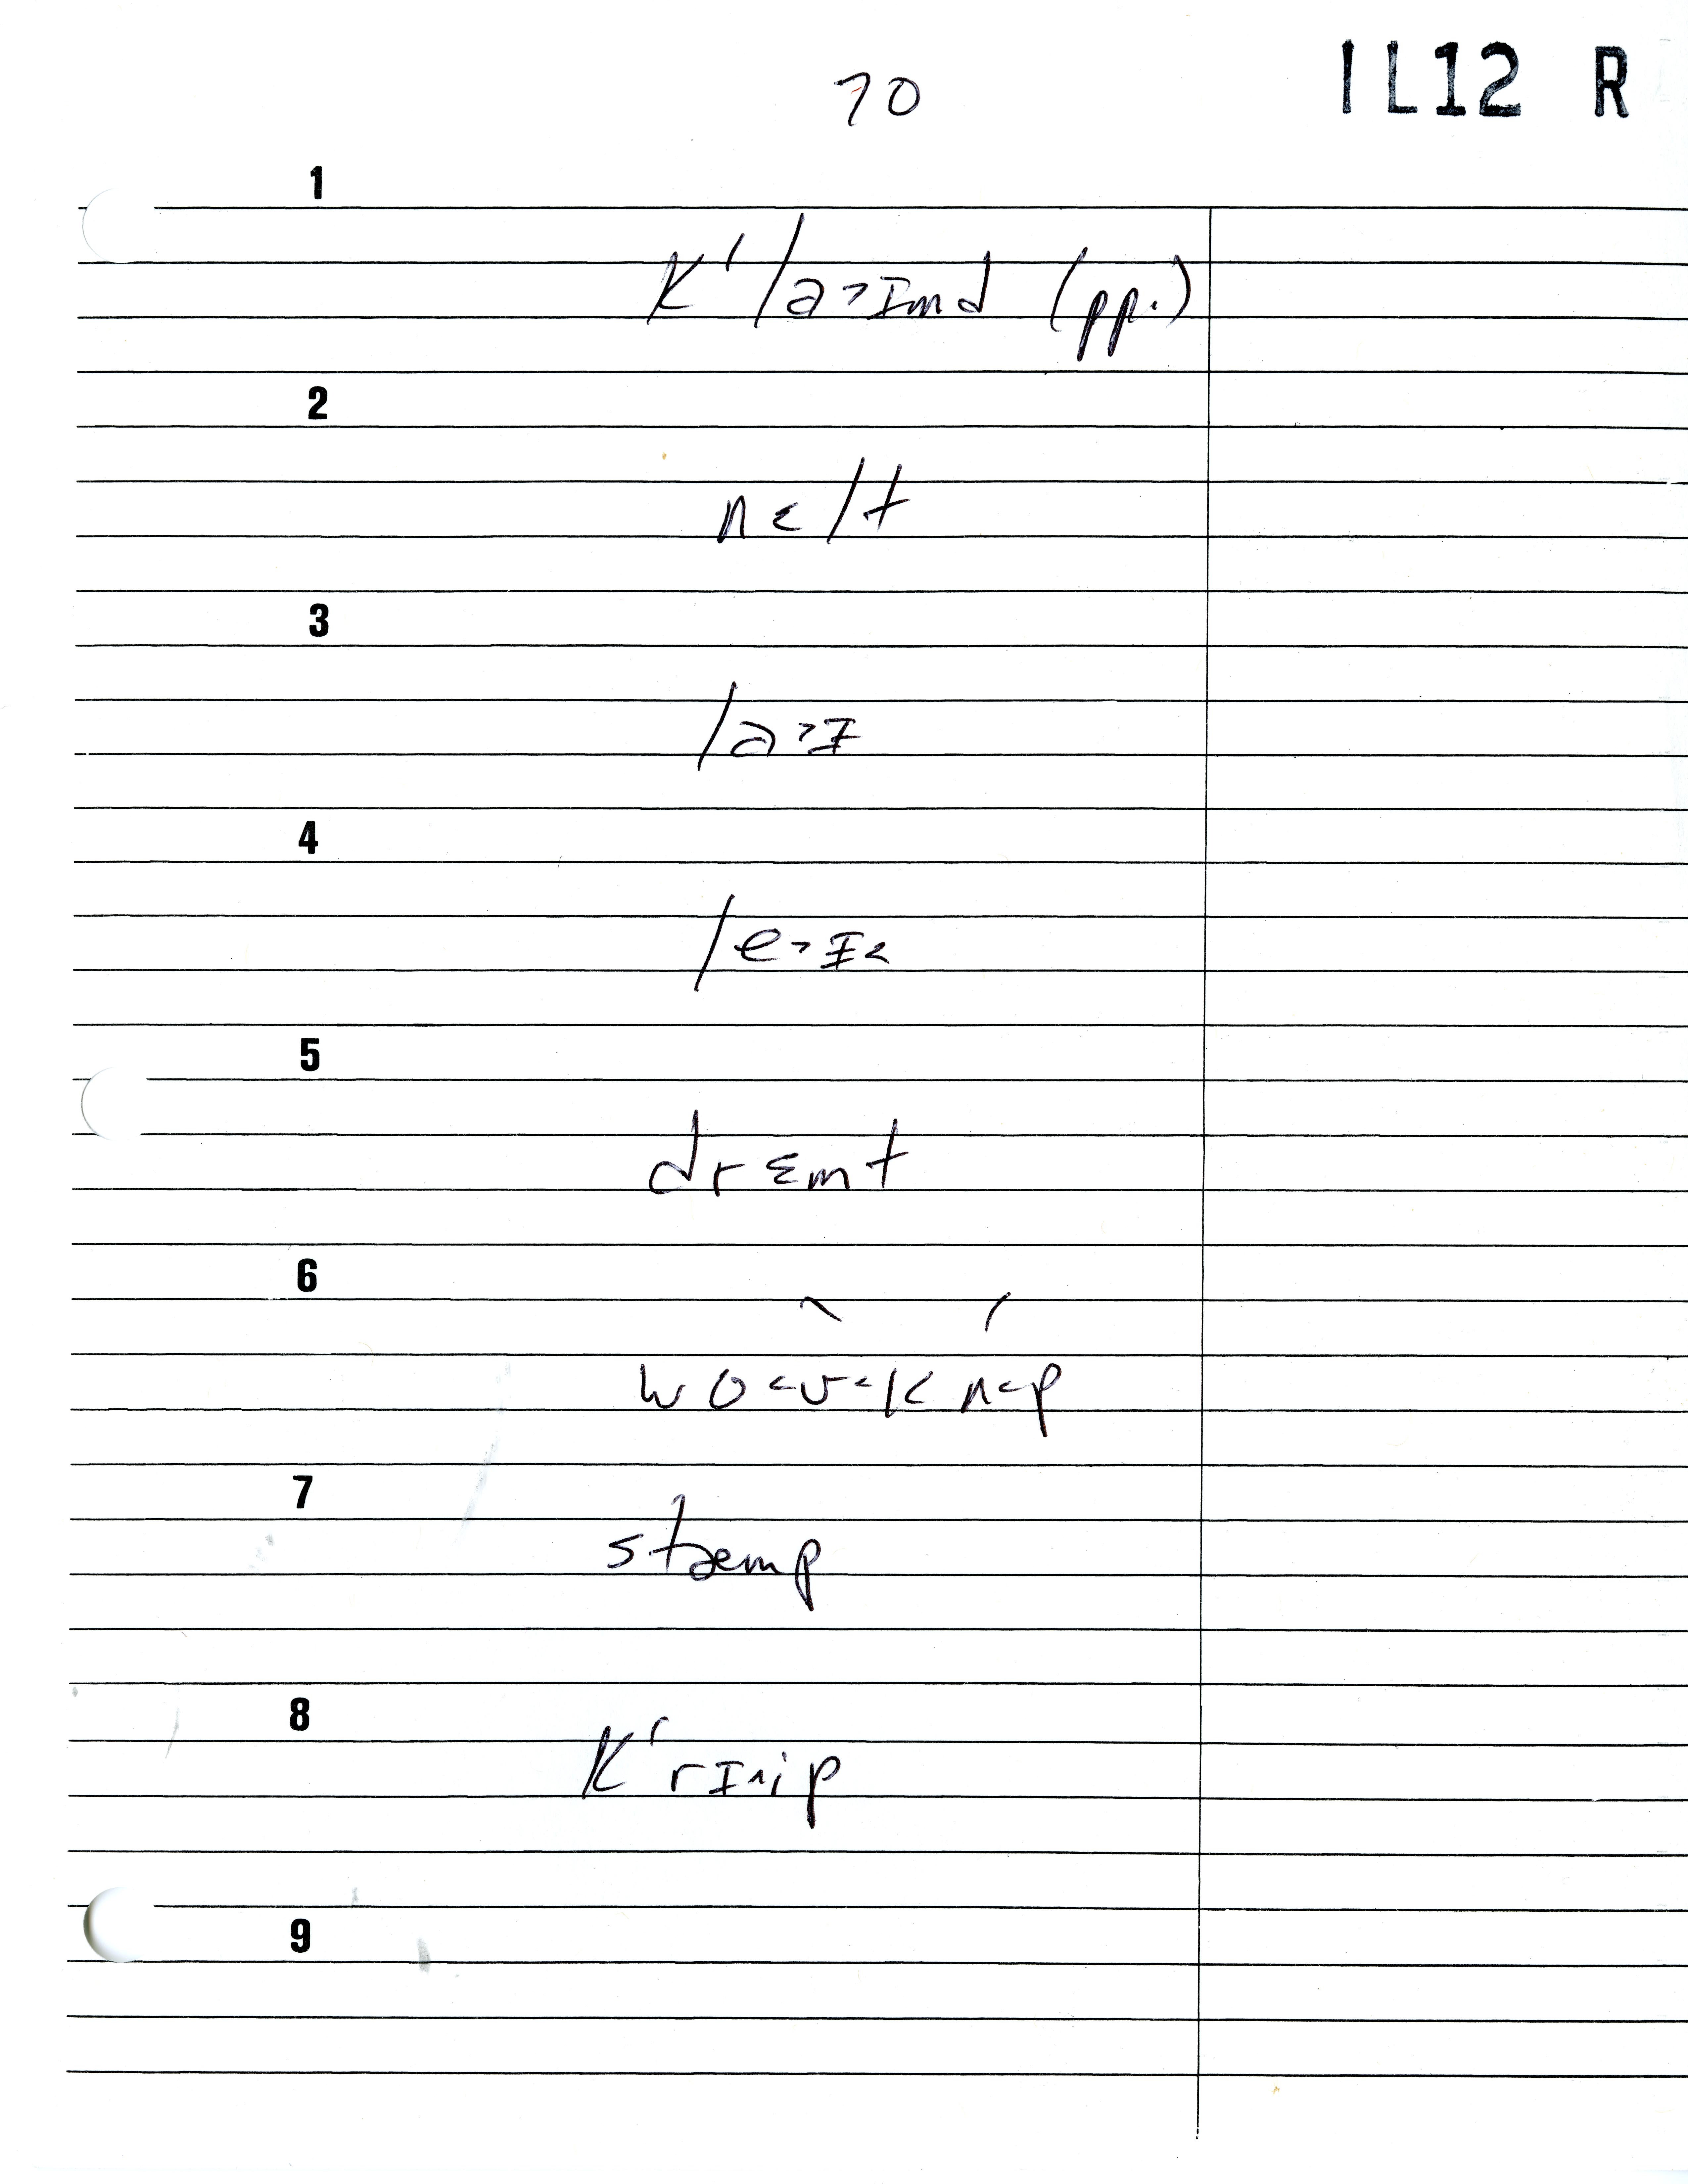 70
IL12 R
1
Kʹla>ɪmd (pp.)
2
nɛlt
3
la>ɪ
4
le>ɪ<
5
drɛmt
6
wo<ʊ<k n<p
7
stæmp
8
Kʹrɪ^ip
9